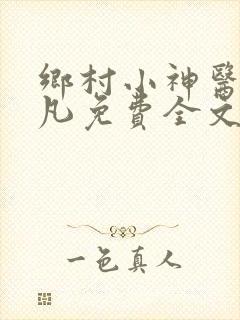 鄉村小神醫
凡免費全文
一色真人